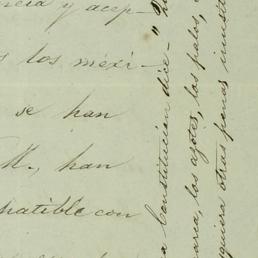 y acep-
los méxi-
se han
M., han
patible con
a Constitucion dice - "
aria, los azotes, los palos,
quiera otras penas inusita